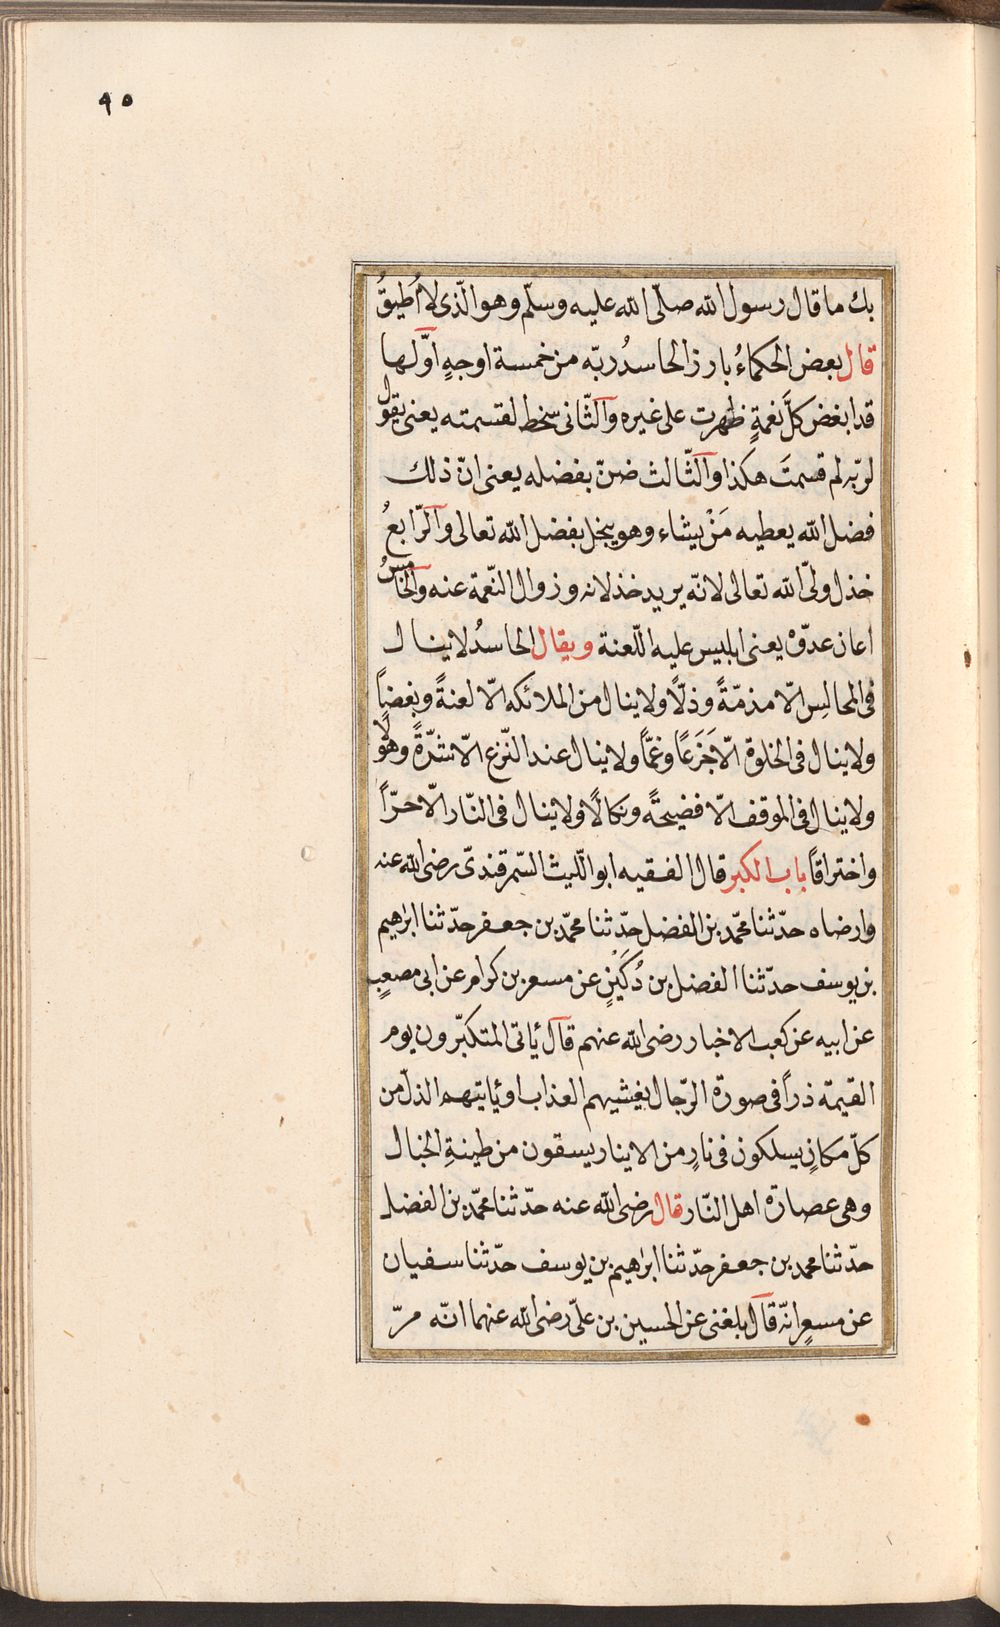 ٩٥
بك ما قال رسول الله صلّى الله عليه وسلّم وهو الّذى لا اُطيقُ
قال بعض الحكماءُ بارز الحاسدُ ربّه من خمسة اوجهٍ اوّلها
قد ابغض كلَّ نعمةٍ ظهرت على غيره والثّانى سخط لقسمته يعنى يقول
لربّه لم قسمتَ هكذا والثّالث ضنّ بفضله يعنى انّ ذلك
فضل الله يعطيه مَنْ يشاء وهو يبخل بفضل الله تعالى والرّابعُ
خذل ولىّ الله تعالى لانّه يريد خذلانه وزوال النّعمة عنه والخامسُ
اعان عدوّه يعنى ابليس عليه اللّعنة ويقال الحاسدُ لا ينال
فى المجالسِ الّا مذمّةً وذلّاً ولا ينال من الملائكه الّا لعنةً وبغضاً
ولا ينال فى الخلوة الّا جَزَعاً وغمّاً ولا ينال عند النّزع الّا شدّةً وهولًا
ولا ينال فى الموقف الّا فضيحةً ونكالًا ولا ينال فى النّار الّا حرّاً
واختراقاً باب الكبر قال الفقيه ابو اللّيث السّمرقندىّ رضى الله عنه
وارضاه حدّثنا محمّد بن الفضل حدّثنا محمّد بن جعفر حدّثنا ابراهيم
بن يوسف حدّثنا الفضل بن دُكَيْنٍ عن مسعر بن كرام عن ابى مصعبٍ
عن ابيه عن كعب الاخبار رضى الله عنهم قال يأتى المتكبّرون يوم
القيمة ذراً فى صورة الرّجال يغشيهم العذاب او يأتيهم الذلّ من
كلّ مكانٍ يسلكون فى نارٍ من الاينار يسقون من طينةِ الخبال
وهى عصارة اهل النّار قال رضى الله عنه حدّثنا محمّد بن الفضل
حدّثنا محمد بن جعفر حدّثنا ابراهيم بن يوسف حدّثنا سفيان
عن مسعرٍ انّه قال بلغنى عن الحسين بن علىّ رضى الله عنهما انّه مرّ